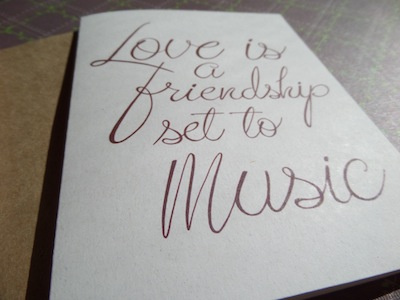 Love is
a
friendship
set to
Music